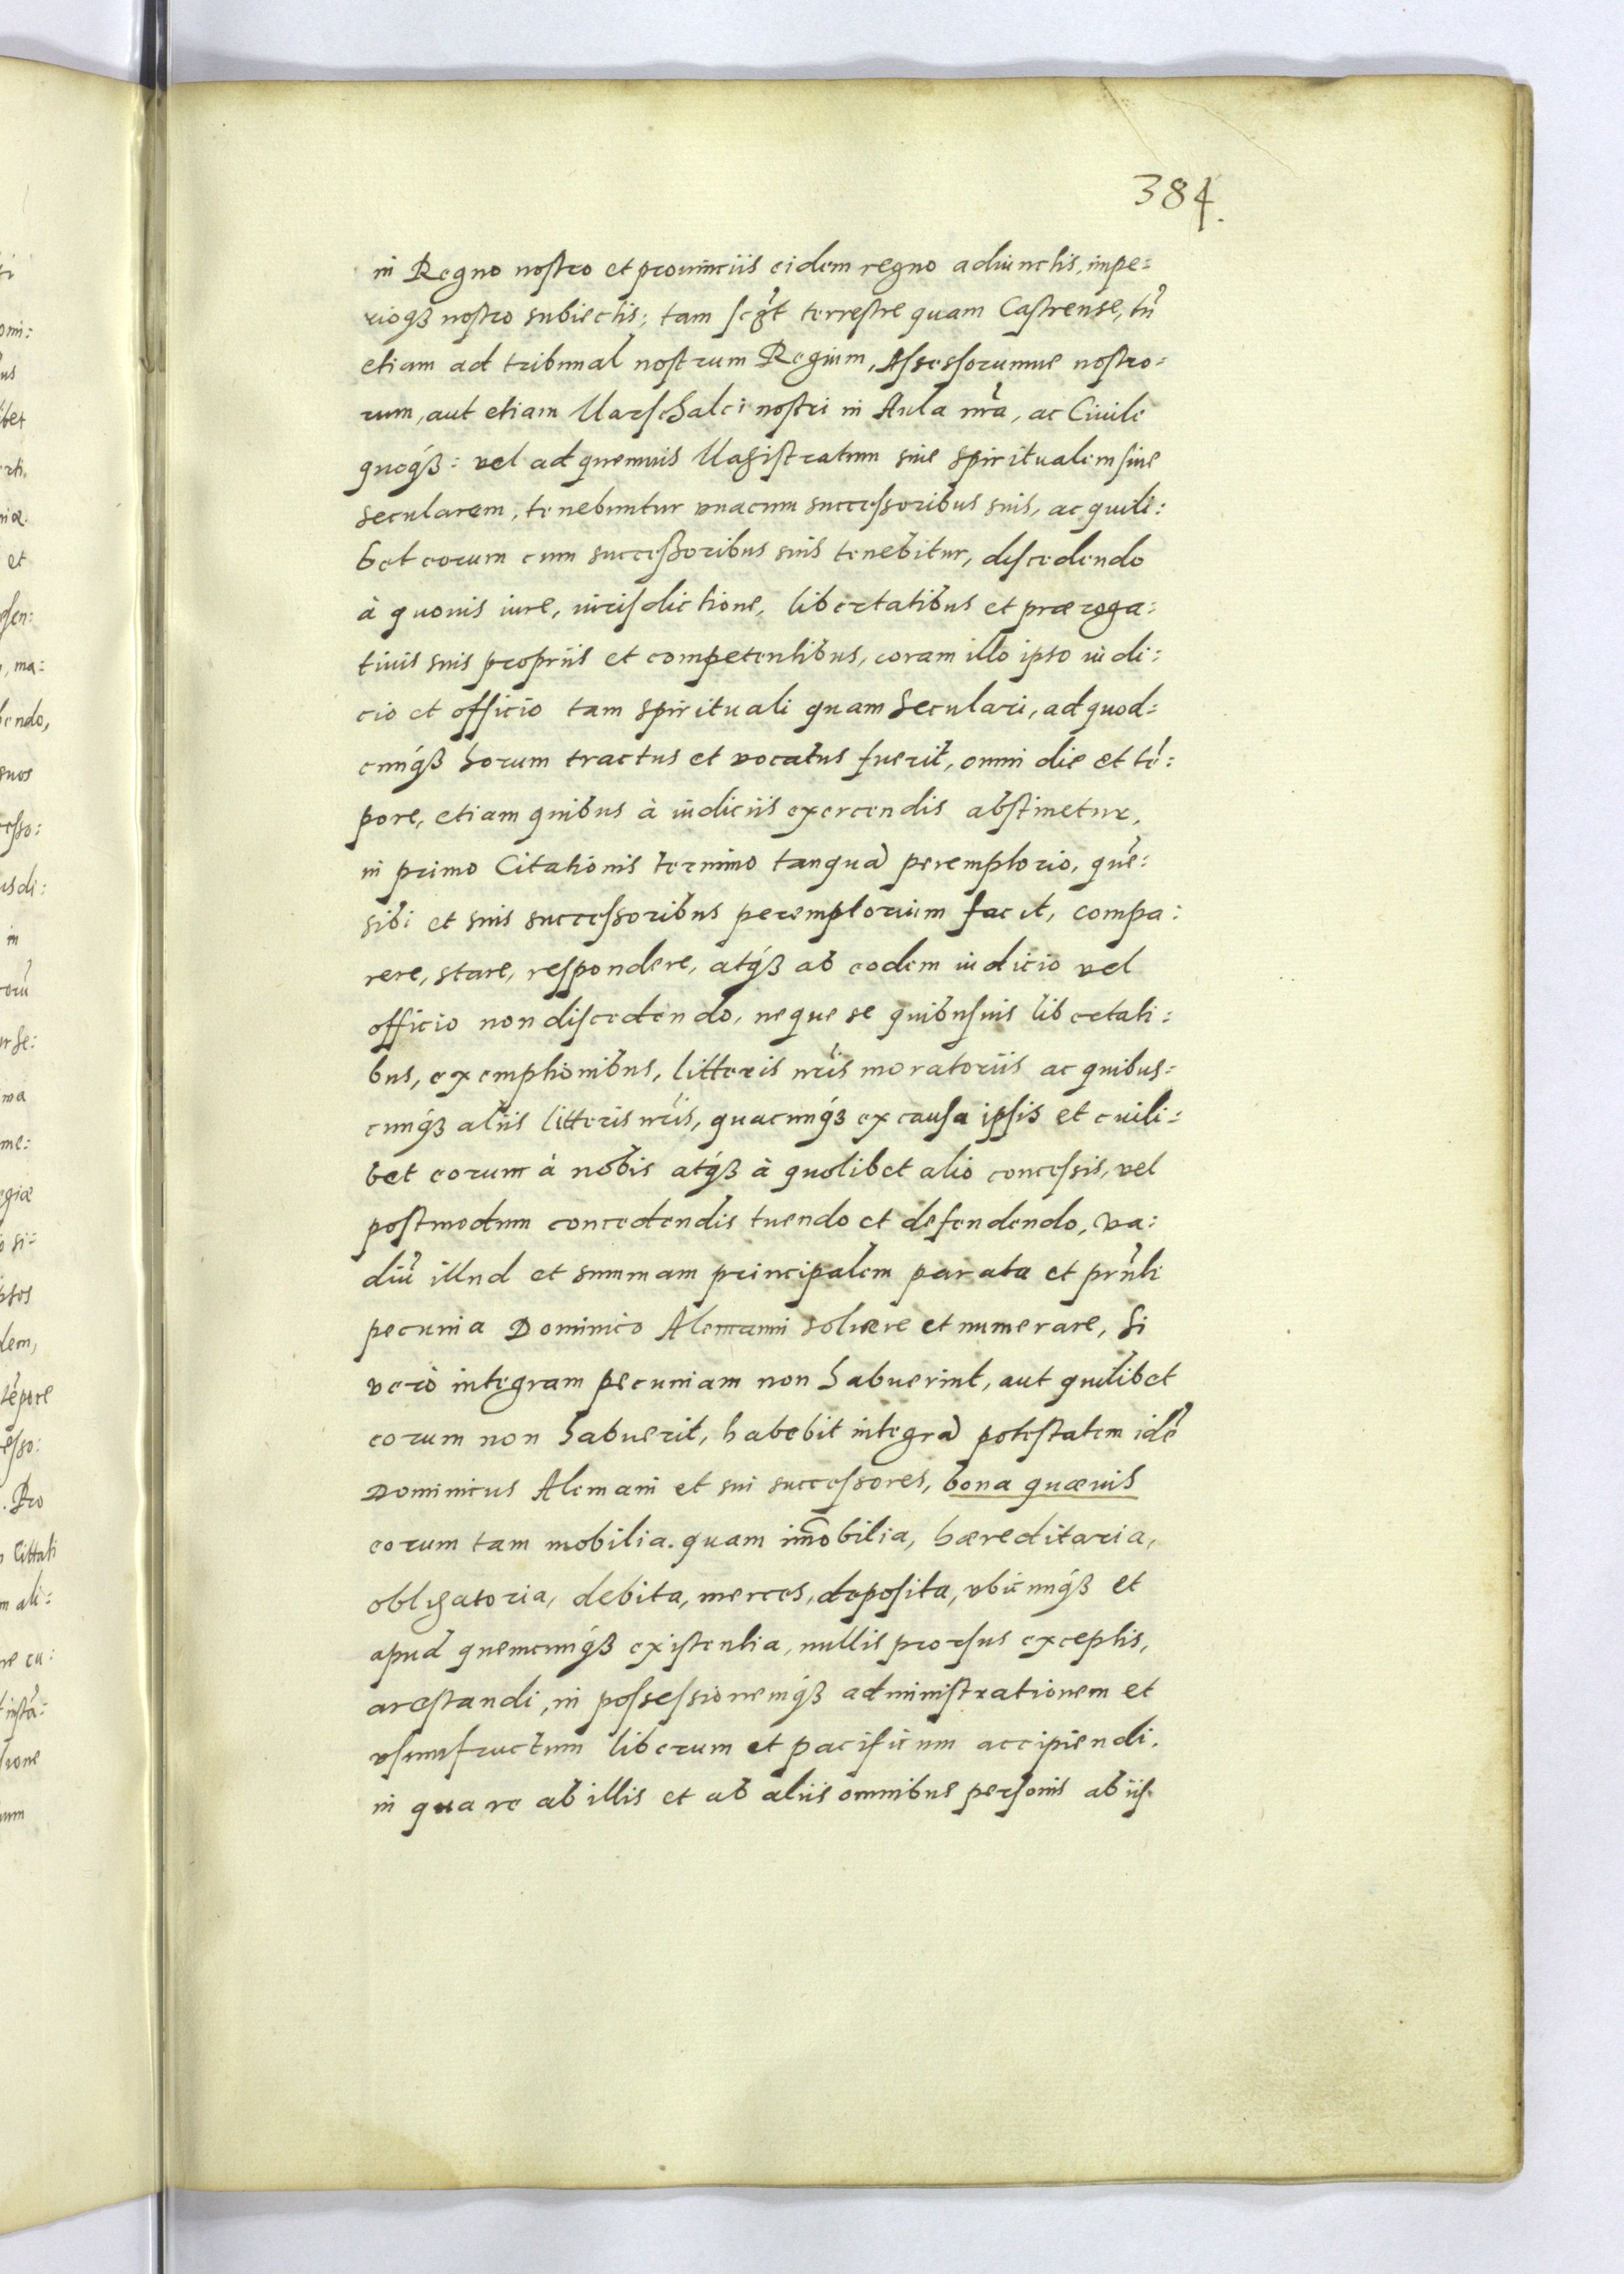 384.
in Regno nostro et prouinciis eidem regno adiunctis, impe=
rioq́ꝫ nostro subiectis; tam scꝫt terrestre quam Castrense, tū
etiam ad tribunal nostrum Regium, Assessorumue nostro=
rum, aut etiam Marschalci nostri in Aula nrā, ac Ciuile
quoq́ꝫ: vel ad quemuis Magistratum siue spiritualem siue
secularem, tenebuntur vnacum successoribus suis, ac quili:
bet eorum cum successoribus suis tenebitur, discedendo
à quouis iure, iurisdictione, libertatibus et præroga:
tiuis suis propriis et competentibus, coram illo ipso iudi:
cio et officio tam spirituali quam seculari, ad quod=
cunq́ꝫ horum tractus et vocatus fuerit, omni die et tē:
pore, etiam quibus à iudiciis exercendis abstinetur,
in primo Citationis termino tanquā peremptorio, quē:
sibi et suis successoribus peremptorium facit, compa:
rere, stare, respondere, atq́ꝫ ab eodem iudicio vel
officio non discedendo, neque se quibusuis libertati:
bus, exemptionibus, litteris nrīs moratoriis ac quibus=
cunq́ꝫ aliis litteris nrīs, quacunq́ꝫ ex causa ipsis et cuili:
bet eorum à nobis atq́ꝫ à quolibet alio concessis, vel
postmodum concedendis tuendo et defendendo, va:
diū illud et summam principalem parata et prn̄ti
pecunia Dominico Alemanni soluere et numerare, si
verò integram pecuniam non habuerint, aut quilibet
eorum non habuerit, habebit integrā potestatem idē
Dominicus Alemani et sui successores, bona quæuis
eorum tam mobilia. quam im̄obilia, hæreditaria,
obligatoria, debita, merces, deposita, vbicunq́ꝫ et
apud quemcunq́ꝫ existentia, nullis prorsus exceptis,
arestandi, in possessionemq́ꝫ administrationem et
vsumfructum liberum et pacificum accipiendi.
in qua re ab illis et ab aliis omnibus personis ab iis.